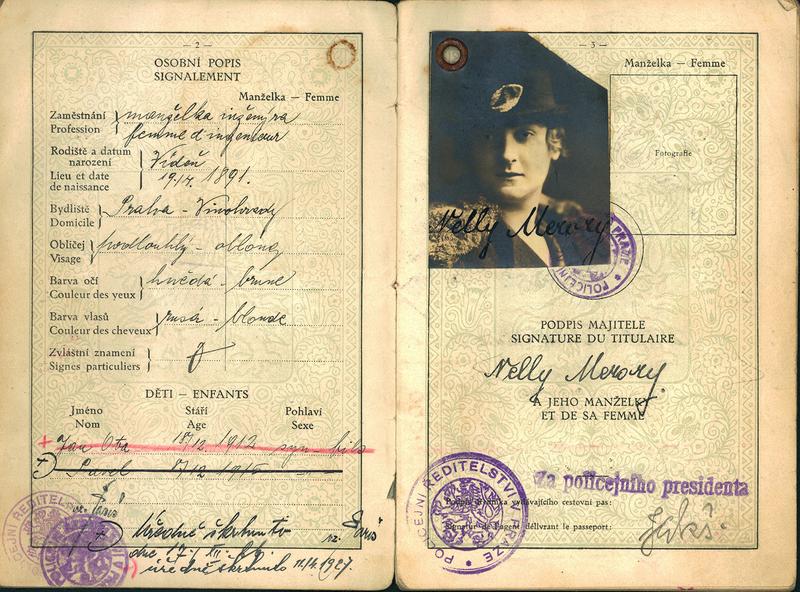 — 2 —
OSOBNÍ POPIS
SIGNALEMENT
Manželka — Femme
Zaměstnání
Profession
manželka inženýra
femme d'ingenieur
Rodiště a datum
narození
Lieu et date
de naissance
Vídeň
1891.
Bydliště
Domicile
Praha - Vinohrady
Obličej
Visage
podlouhlý - oblong
Barva očí
Couleur des yeux
hnědá - brune
Barva vlasů
Couleur des cheveux
rusá - blonde
Zvláštní znamení
Signes particuliers
DĚTI — ENFANTS
Jméno
Nom
Stáří
Age
Pohlaví
Sexe
Jan Ota 18/12 1912 syn - fils
Pavel
Úředně škrtnuto
úředně škrtnuto 1927.
— 3 —
Manželka — Femme
Fotografie
Nelly Merory
POLICEJNÍ PRAZE
PODPIS MAJITELE
SIGNATURE DU TITULAIRE
Nelly Merory
A JEHO MANŽELKY
ET DE SA FEMME
Za policejního presidenta
vydávajícího cestovní pas:
délivrant le passeport:
POLICEJNÍ ŘEDITELSTVÍ V PRAZE